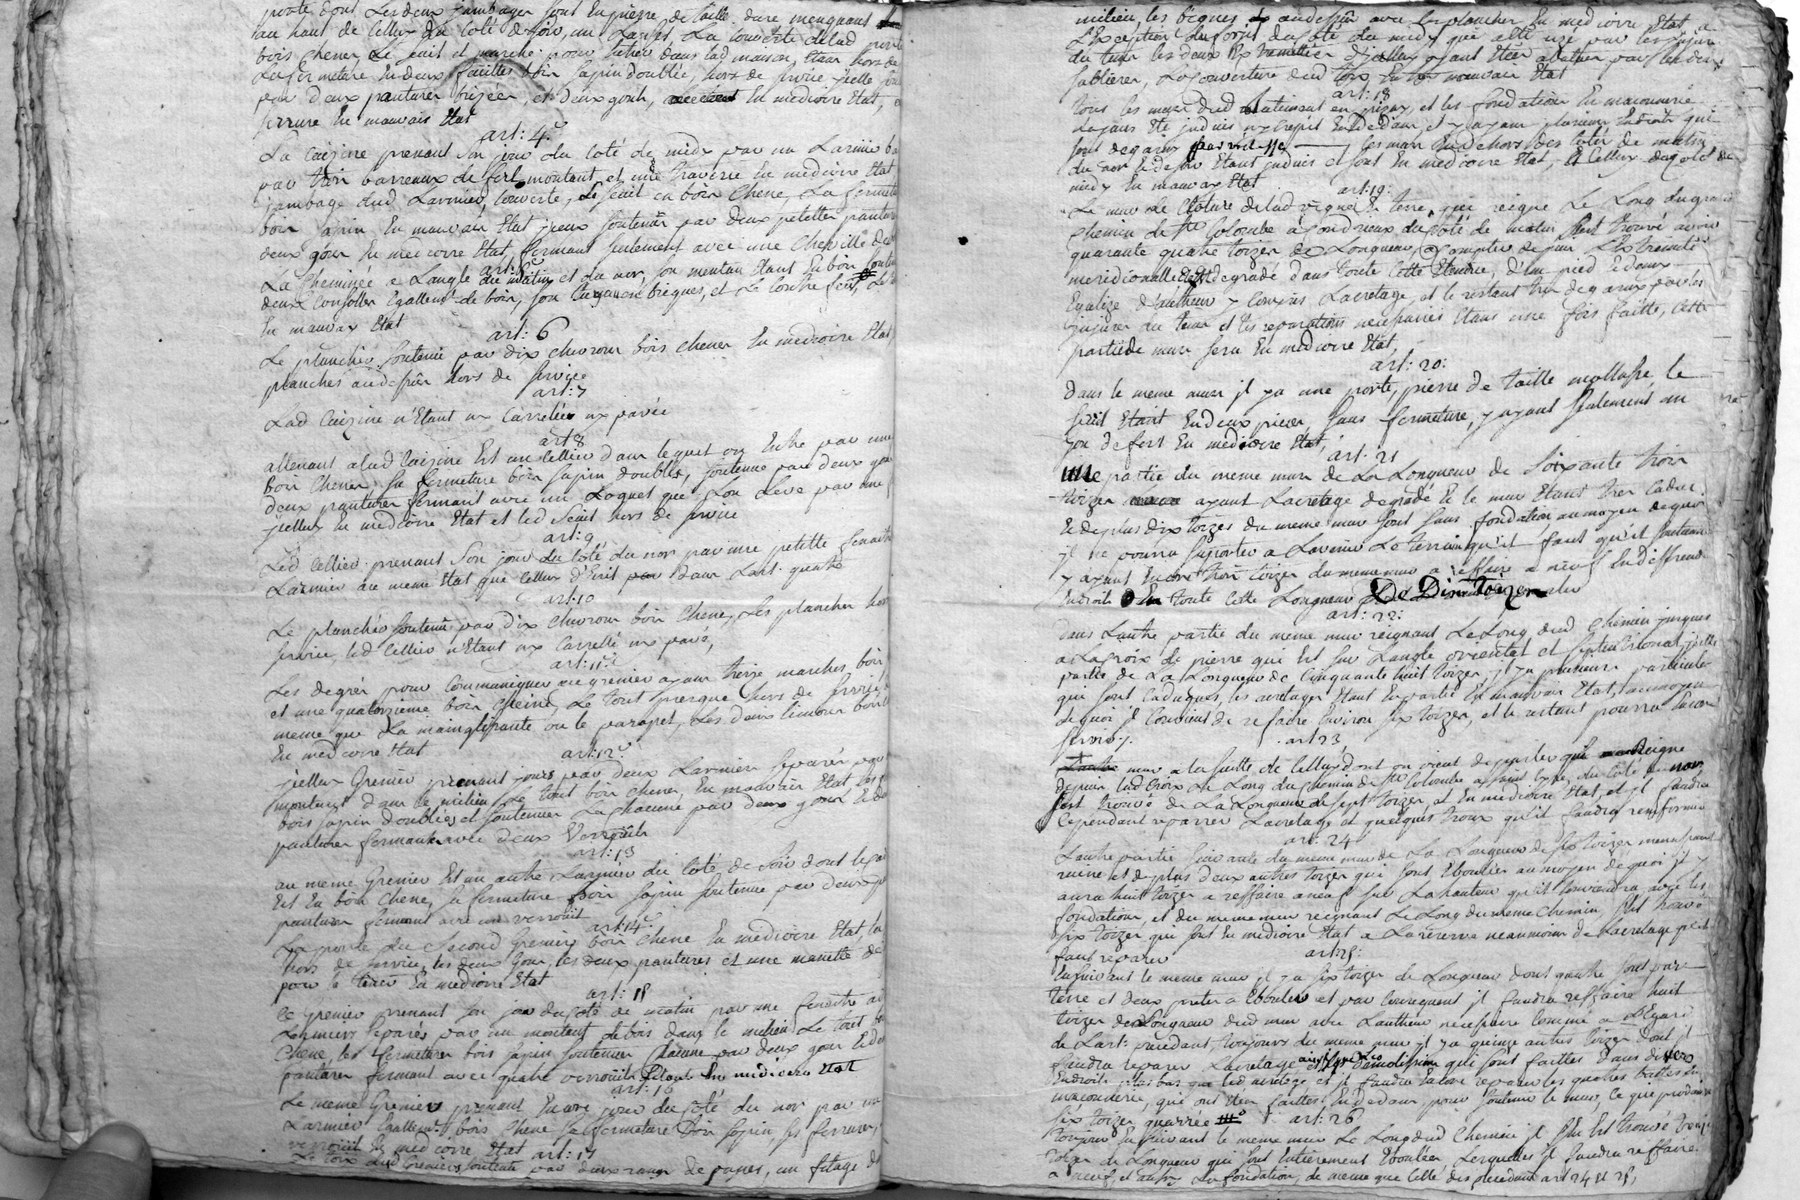 porte dont les deux jambages sont en pierre de taille dure menquant
au haut de celluy du coté de soir, un
bois chene, le seuil et marche pour entrer dans lad maison, etant hors de
la fermeture en deux feuilles bois sapin doublée, hors de service jcelle
par deux pantures brizées, et deux gonds, en mediocre Etat,
serrure en mauvais Etat
art: 4e
La Cuizine prenant Son jour du Coté de midy par un Larmier
par trois barreaux de fert montant, et une traverse en mediocre Etat
jambage dud Larmier, couverte, et seuil en bois Chene, La fermeture
bois sapin En mauvais Etat jceux soutenus par deux petittes pantures
deux gons En mediocre Etat, fermant seulement avec une Cheville de
art: 5e
La Cheminée a Langle du matin et du nor, son mentau Etant En bois soutenu
deux Consolles Egallemt de bois, son briques, et Le Contre feu,
En mauvax Etat
art: 6
Le planchés soutenu par dix chevrons bois chene En mediocre Etat
planches audessus hors de service
art: 7
Lad Cuizine n'Etant ny Carrelée ny pavée
art 8
attenant alad Cuizine Est un Cellier dans lequel on Entre par une
bois chene Sa fermeture bois sapin doublée, soutenue par deux gons
deux pantures fermant avec un Loquet que l'on Leve par une
jcelluy En mediocre Etat et led seuil hors de service
art: 9
Led Cellier prenant Son jour du coté du nor par une petitte fenaitre
Larmier de meme Etat que Celluy d'Ecrit dans Lart. quatre
art: 10
Le planchés soutenu par dix chevrons bois Chene, Les planches hors
service, led Cellier n'Etant ny Carrellé ny pavé,
art: 11e
Les degrés pour Communiquer au grenier ayant treize marches bois
et une quatorzieme bois chene, Le tout presque hors de service,
meme que La mainglissante ou le parapet, Les deux limons bois
En mediocre Etat
art: 12e
jcelluy Grenier prenant jours par deux Larmiers separés par
montant dans le milieu Le tout bois chene, En mauvais Etat Les
bois sapin doublés et soutenues La chacune par deux gons Et deux
pantures fermant avec deux Verrouils
art: 13
au meme Grenier Est un autre Larmier du coté de Soir dont le
Est En bois Chene, Sa fermeture bois Sapin Soutenue par deux
pantures fermant avec un verrouil
art: 14e
La porte du Second Grenier bois chene En mediocre Etat
hors de service, les deux Gons, les deux pantures et une manette de
pour la tirer En mediocre Etat
art: 15
Ce Grenier prenant son jour du coté de matin par une fenaitre
Larmiers separés par un montant de bois dans le milieu Le tout
Chene, les fermetures bois sapin soutenues chacune par deux gons Et deux
pantures fermant avec quatre verrouils Etant En mediocre Etat
art: 16
Le meme Grenier prenant Encore jour du coté du nor par un
Larmier Egallemt bois Chene Sa fermeture bois sapin ses ferrures,
verrouil En mediocre Etat
art: 17
Le toit dud Grenier soutenu par deux rangs de panes, un fetage
milieu, les briques audessus avec le plancher En mediocre Etat a
L'Exception du coté du midy qui a eté uzé par les injures
du tems les deux d'jcelluy ayant Eter abattu par
sablieres, La couverture dud toit En tres mauvais Etat
art: 18
tous les murs dud batiment en pizay, et les fondations En maconnerie
Layant Eté jnduis ny crepis Endedans, et y ayant plusieurs Endroits qui
sont degarnis les murs Endehors des cotés de matin
du nor Et de soir Etant jnduis et sont En mediocre Etat, Et Celluy du coté de
midy En mauvax Etat
art: 19:
Le mur de Cloture delad vigne Et terre, qui reigne Le Long du grand
Chemin de Ste Colombe à Condrieux du coté de matin s'est trouvé avoir
quarante quatre toizes de Longueur a Compter depuis L'Extremité
meridionalle Est degradé dans toute cette Etendue, d'un pied Et demi
Egalizé d'autheur y Compris Lacretage, et le restant tres degarnis par les
jnjures du tems et les reparations necessaires Etant une fois faittes, cette
partie de mur sera En mediocre Etat,
art: 20:
dans le meme mur jl y a une porte, pierre de taille mollasse le
seuil Etant En deux pieces sans fermeture, y ayant seulement un
gon de fert En mediocre Etat,
art: 21
Une partie du meme mur de La Longueur de Soixante trois
toizes ayant Lacretage degradé Et le mur Etant tres Caduc
Et de plus dix toizes du meme mur sont sans fondation au moyen de quoi
jl ne pourra suporter a Lavenir Le terrain qu'il faut qu'il soutienne
y ayant Encore trois toizes du meme mur a reffaire a neuf En differend
Endroits En toute cette Longueur De Dix toizes
art: 22:
dans Lautre partie du meme mur reignant Le Long dud Chemin jusques
a La croix de pierre qui Est sur Langle orientet et septentrional jcelle
partie de La Longueur de Cinquante huit toizes, jl y a plusieurs particules
qui sont Caduques, les acretages Etant En partie En mauvais Etat, au moyen
de quoi jl Convient de refaire Environ six toizes, et le restant pourra Encore
servir.
art 23
mur a la suitte de Celluy dont on vient de parler qui Reigne
depuis lad Croix Le Long du chemin de Ste Colombe a du coté de nor
s'est trouvé de La Longueur de sept toizes, et En mediocre Etat, et jl faudra
Cependant reparrer Lacretage et quelques troux qu'il faudra renformir
art: 24
Lautre partie suivante du meme mur de La Longueur de six toizes menassant
ruine et de plus deux autres toizes qui sont Eboulées au moyen de quoi jl y
aura huit toizes a reffaire a neuf sur La hauteur qu'il conviendra avec les
fondations, et du meme mur reignant Le Long du meme chemin s'est trouvé
six toizes qui sont En mediocre Etat a La reserve neanmoins de Lacretage qu'il
faut reparer
art: 25:
Ensuivant le meme mur jl y a six toizes de Longueur dont quatre sont par
terre et deux pretes a Ebouler et par Consequent jl faudra reffaire huit
toizes de Longueur dud mur avec Lautheur necessaire Comme a L'Egard
de Lart: precedent, toujours du meme mur jl y a quinze autres toizes dont jl
faudra reparer Lacretage et les demolissions qui sont faittes dans divers
Endroits plus bas que led acretage et jl faudra Encore reparer les quatres
maconnerie, qui ont Eter faittes Endedans pour soutenir le mur, ce qui produira
six toizes quarrée
art: 26
Toujours Ensuivant le meme mur Le Long dud Chemin jl s'en Est trouvé treize
toizes de Longueur qui sont Entierement Eboulées Lesquelles jl faudra reffaire
a neuf, et aussy La fondation, de meme que Celle des precedents art 24 et 25,